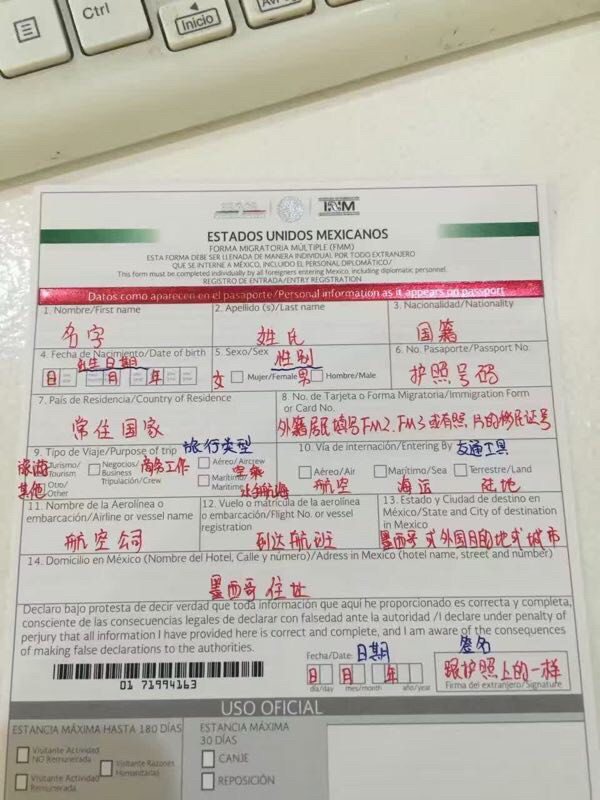 Ctrl
Inicio
INM
ESTADOS UNIDOS MEXICANOS
FORMA MIGRATORIA MÚLTIPLE (FMM)
ESTA FORMA DEBE SER LLENADA DE MANERA INDIVIDUAL POR TODO EXTRANJERO
QUE SE INTERNE A MÉXICO, INCLUIDO EL PERSONAL DIPLOMÁTICO/
This form must be completed individually by all foreigners entering Mexico, including diplomatic personnel.
REGISTRO DE ENTRADA/ENTRY REGISTRATION
Datos como aparecen en el pasaporte/Personal information as it appears on passport
1. Nombre/First name
名字
2. Apellido (s)/Last name
姓氏
3. Nacionalidad/Nationality
国籍
4. Fecha de Nacimiento/Date of birth
出生日期
日 月 年
5. Sexo/Sex 性别
女 Mujer/Female 男 Hombre/Male
6. No. Pasaporte/Passport No.
护照号码
7. País de Residencia/Country of Residence
常住国家
8. No. de Tarjeta o Forma Migratoria/Immigration Form
or Card No.
外籍居民填写FM2.FM3或有照片的移民证号
9. Tipo de Viaje/Purpose of trip 旅行类型
旅游 Turismo/
Tourism
Negocios/
Business 商务工作
Aéreo/Aircrew
Otro/
Other 其他
Tripulación/Crew
Marítimo/
Maritime
10. Vía de internación/Entering By 交通工具
Aéreo/Air Marítimo/Sea Terrestre/Land
航空 海运 陆地
11. Nombre de la Aerolínea o
embarcación/Airline or vessel name
航空公司
12. Vuelo o matrícula de la aerolínea
o embarcación/Flight No. or vessel
registration
到达航班
13. Estado y Ciudad de destino en
México/State and City of destination
in Mexico
墨西哥或外国目的地或城市
14. Domicilio en México (Nombre del Hotel, Calle y número)/Adress in Mexico (hotel name, street and number)
墨西哥住址
Declaro bajo protesta de decir verdad que toda información que aquí he proporcionado es correcta y completa,
consciente de las consecuencias legales de declarar con falsedad ante la autoridad /I declare under penalty of
perjury that all information I have provided here is correct and complete, and I am aware of the consequences
of making false declarations to the authorities.
签名
Fecha/Date: 日期
日 月 年
día/day mes/month año/year
跟护照上的一样
Firma del extranjero/Signature
01 71994163
USO OFICIAL
ESTANCIA MÁXIMA HASTA 180 DÍAS
Visitante Actividad
NO Remunerada
Visitante Razones
Humanitarias
Visitante Actividad
Remunerada
ESTANCIA MÁXIMA
30 DÍAS
CANJE
REPOSICIÓN